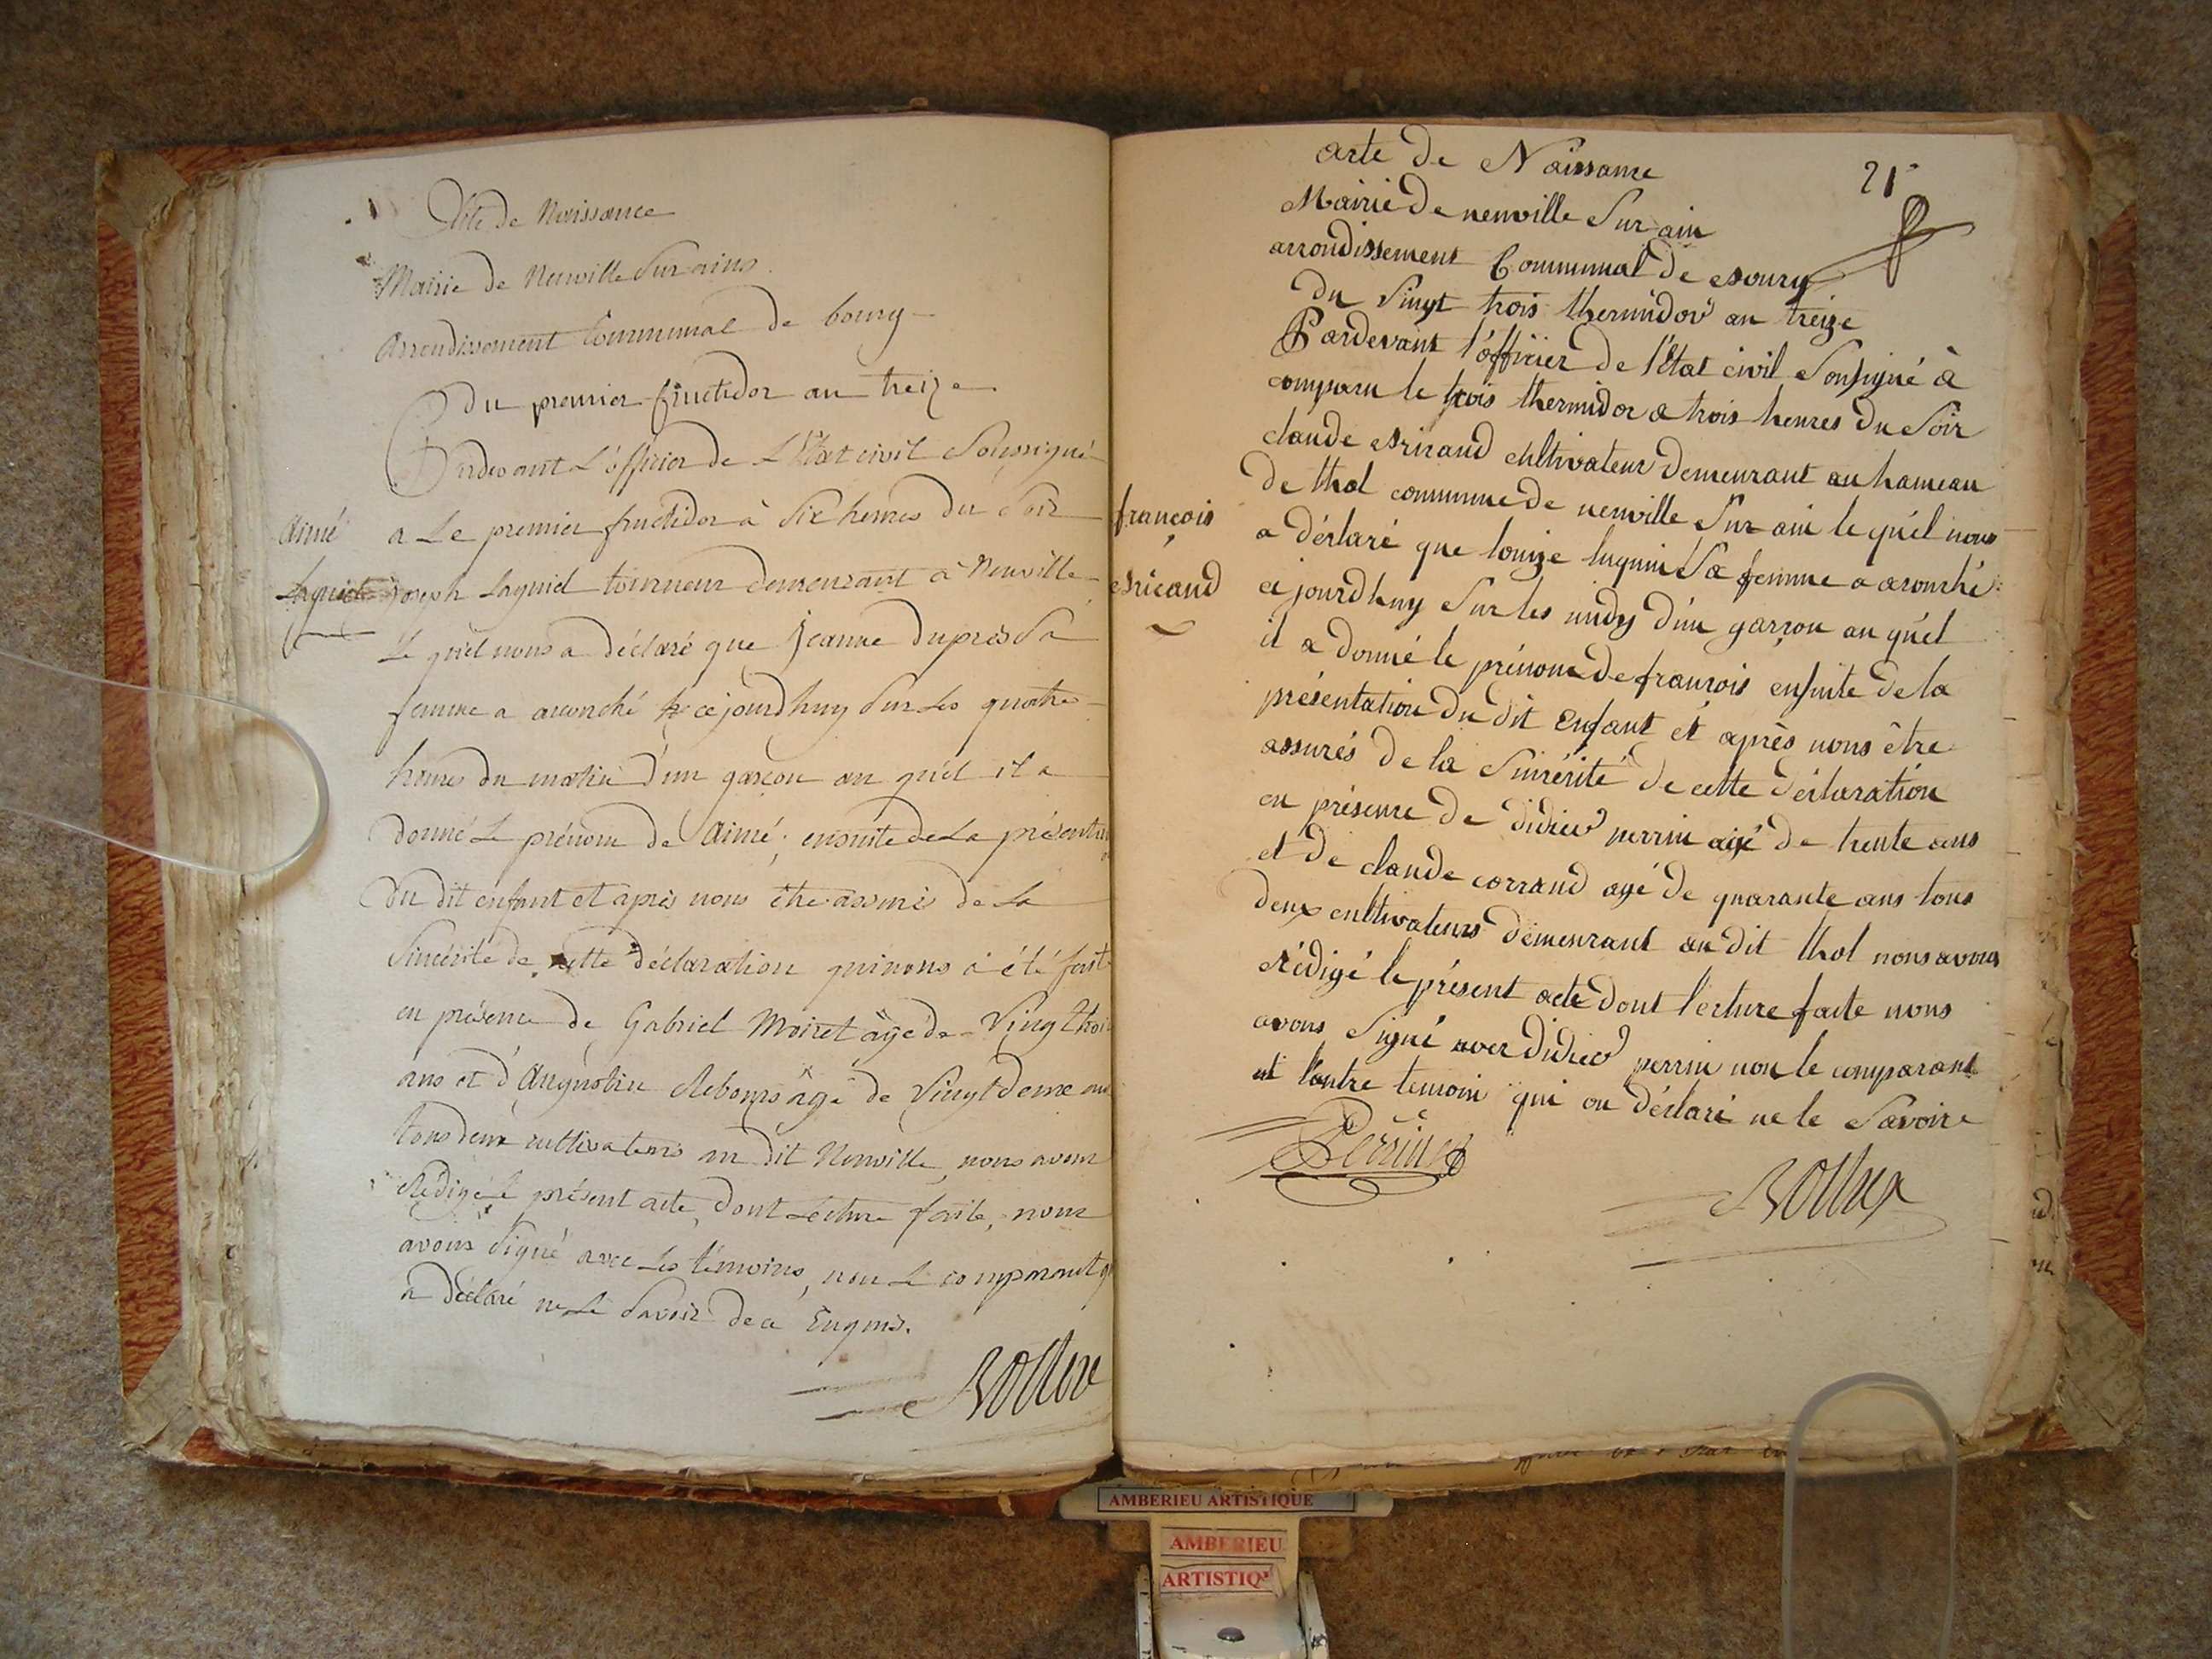 Acte de Naissance
Mairie de Neuville Sur ains
Arrondissement Communal de bourg
Du premier fructidor an treize
Pardevant L'officier de L'Etat civil Soussigné
Aimé
a Le premier fructidor à Six heures du Soir
joseph Layuid tourneur demeurant à Neuville
Le quel nous a déclaré que Jeanne Duprés Sa
femme a accouché ce jourdhuy Sur Les quatre
heures du matin d'un garçon au quel il a
donné Le prénom de Aimé, ensuite de La
du dit enfant et après nous être assuré de La
Sincérité de cette déclaration qui nous a été fait
en présence de Gabriel Moiret âgé de Vingt trois
ans et d'Augustin âgé de Vingt deux ans
tous deux cultivateurs au dit Neuville, nous avons
Rédigé le présent acte, dont Lecture faite, nous
avons Signé avec Les témoins, non Le comparant
a déclaré ne Le Savoir de ce Enquis.
acte de Naissance
21
Mairie de neuville Sur ain
arrondissement Communal de Bourg
du Vingt trois thermidor an treize
Pardevant l'officier de l'état civil Soussigné à
comparu le trois thermidor a trois heures du Soir
claude cultivateur demeurant au hameau
de thol commune de neuville Sur ain le quel nous
françois
a déclaré que louize Sa femme a accouché
ce jourdhuy Sur les midy d'un garçon au quel
il a donné le prénom de françois ensuite de la
présentation du dit Enfant et après nous être
assurés de la Sincérité de cette déclaration
en présence de didier perrin agé de trente ans
et de claude corrand agé de quarante ans tous
deux cultivateurs demeurant au dit thol nous avons
Rédigé le présent acte dont lecture faite nous
avons Signé avec didier perrin non le comparant
et l'autre temoin qui on déclaré ne le Savoire
Perrin
AMBERIEU ARTISTIQUE
AMBERIEU
ARTISTIQ